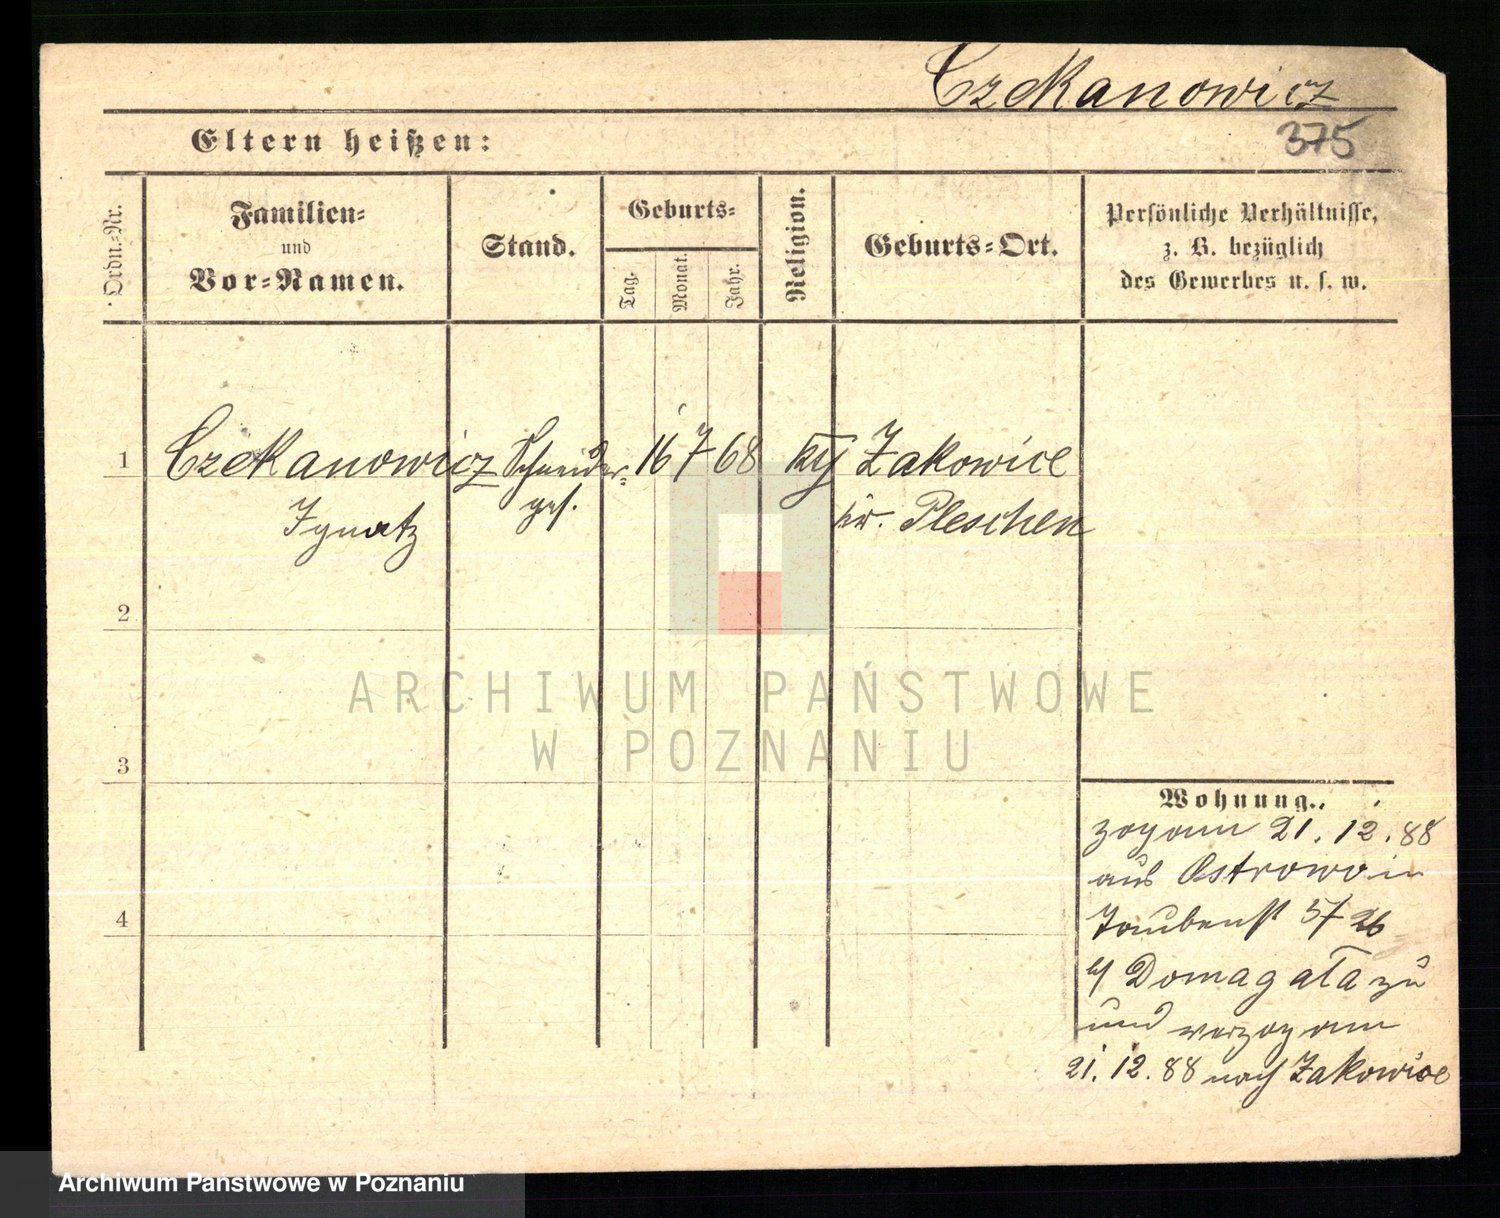 Czekanowicz
375
Eltern heißen:
Ordn.-Nr.
Familien-
und
Vor-Namen.
Stand.
Geburts-
Tag.
Monat.
Jahr.
Religion.
Geburts-Ort.
Persönliche Verhältnisse,
z. B. bezüglich
des Gewerbes u. s. w.
1 Czekanowicz Schneider- 16 7 68 Zakowice
Ignatz ges. Kr. Pleschen
2
3
4
Wohnung.
zog am 21.12.88
aus Ostrowo in
Taubenst 5/26
b/ Domagała zu
und verzog am
21.12.88 nach Zakowice
ARCHIWUM PAŃSTWOWE
W POZNANIU
Archiwum Państwowe w Poznaniu